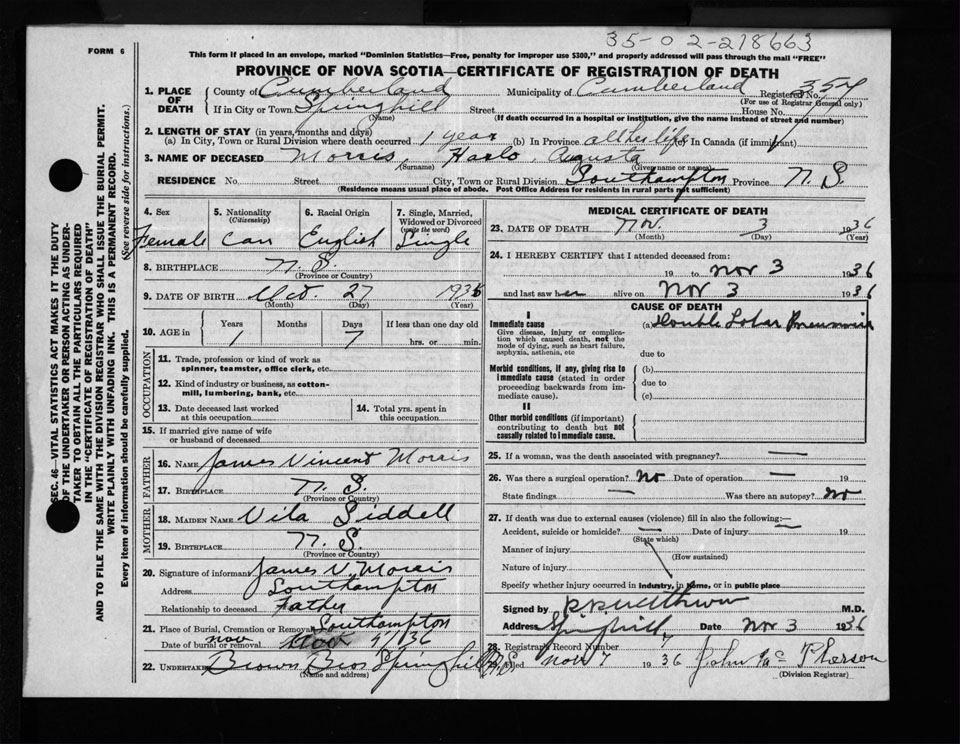 35-02-218663
FORM 6
This form if placed in an envelope, marked "Dominion Statistics—Free, penalty for improper use $300," and properly addressed will pass through the mail "FREE"
PROVINCE OF NOVA SCOTIA—CERTIFICATE OF REGISTRATION OF DEATH
1. PLACE OF DEATH
County of Cumberland Municipality of Cumberland Registered No. 357
(For use of Registrar General only)
If in City or Town Springhill Street House No.
(Name) (If death occurred in a hospital or institution, give the name instead of street and number)
2. LENGTH OF STAY (in years, months and days)
(a) In City, Town or Rural Division where death occurred 1 year (b) In Province all her life (c) In Canada (if immigrant)
3. NAME OF DECEASED Morris, Harlo Augusta
(Surname) (Given name or names)
RESIDENCE No. Street City, Town or Rural Division Southampton Province N.S.
(Residence means usual place of abode. Post Office Address for residents in rural parts not sufficient)
SEC. 46—VITAL STATISTICS ACT MAKES IT THE DUTY
OF THE UNDERTAKER OR PERSON ACTING AS UNDER-
TAKER TO OBTAIN ALL THE PARTICULARS REQUIRED
IN THE "CERTIFICATE OF REGISTRATION OF DEATH"
AND TO FILE THE SAME WITH THE DIVISION REGISTRAR WHO SHALL ISSUE THE BURIAL PERMIT.
WRITE PLAINLY WITH UNFADING INK. THIS IS A PERMANENT RECORD.
Every item of information should be carefully supplied. (See reverse side for instructions.)
4. Sex 5. Nationality 6. Racial Origin 7. Single, Married,
(Citizenship) Widowed or Divorced
(write the word)
Female Can English Single
8. BIRTHPLACE N.S.
(Province or Country)
9. DATE OF BIRTH Oct. 27 1935
(Month) (Day) (Year)
10. AGE in
Years Months Days If less than one day old
1 7 hrs. or min.
OCCUPATION
11. Trade, profession or kind of work as
spinner, teamster, office clerk, etc.
12. Kind of industry or business, as cotton-
mill, lumbering, bank, etc.
13. Date deceased last worked
at this occupation
14. Total yrs. spent in
this occupation
15. If married give name of wife
or husband of deceased
FATHER
16. NAME James Vincent Morris
17. BIRTHPLACE N.S.
(Province or Country)
MOTHER
18. MAIDEN NAME Vita Siddell
19. BIRTHPLACE N.S.
(Province or Country)
20. Signature of informant James V. Morris
Address Southampton
Relationship to deceased Father
21. Place of Burial, Cremation or Removal Southampton
Date of burial or removal Nov 1936
22. UNDERTAKER Brown Bros Springhill N.S.
(Name and address)
MEDICAL CERTIFICATE OF DEATH
23. DATE OF DEATH Nov. 3 1936
(Month) (Day) (Year)
24. I HEREBY CERTIFY that I attended deceased from:
19 to Nov 3 1936
and last saw her alive on Nov 3 1936
CAUSE OF DEATH
I
Immediate cause
Give disease, injury or complica-
tion which caused death, not the
mode of dying, such as heart failure,
asphyxia, asthenia, etc
(a) Double Lobar Pneumonia
due to
Morbid conditions, if any, giving rise to
immediate cause (stated in order
proceeding backwards from im-
mediate cause).
(b)
due to
(c)
II
Other morbid conditions (if important)
contributing to death but not
causally related to immediate cause.
25. If a woman, was the death associated with pregnancy? —
26. Was there a surgical operation? No Date of operation — 19
State findings — Was there an autopsy? No
27. If death was due to external causes (violence) fill in also the following:—
Accident, suicide or homicide? — Date of injury — 19
(State which)
Manner of injury
(How sustained)
Nature of injury
Specify whether injury occurred in industry, in home, or in public place
Signed by M.D.
Address Springhill Date Nov 3 1936
28. Registrar's Record Number 7
29. Filed Nov 7 1936 John Mac Pherson
(Division Registrar)